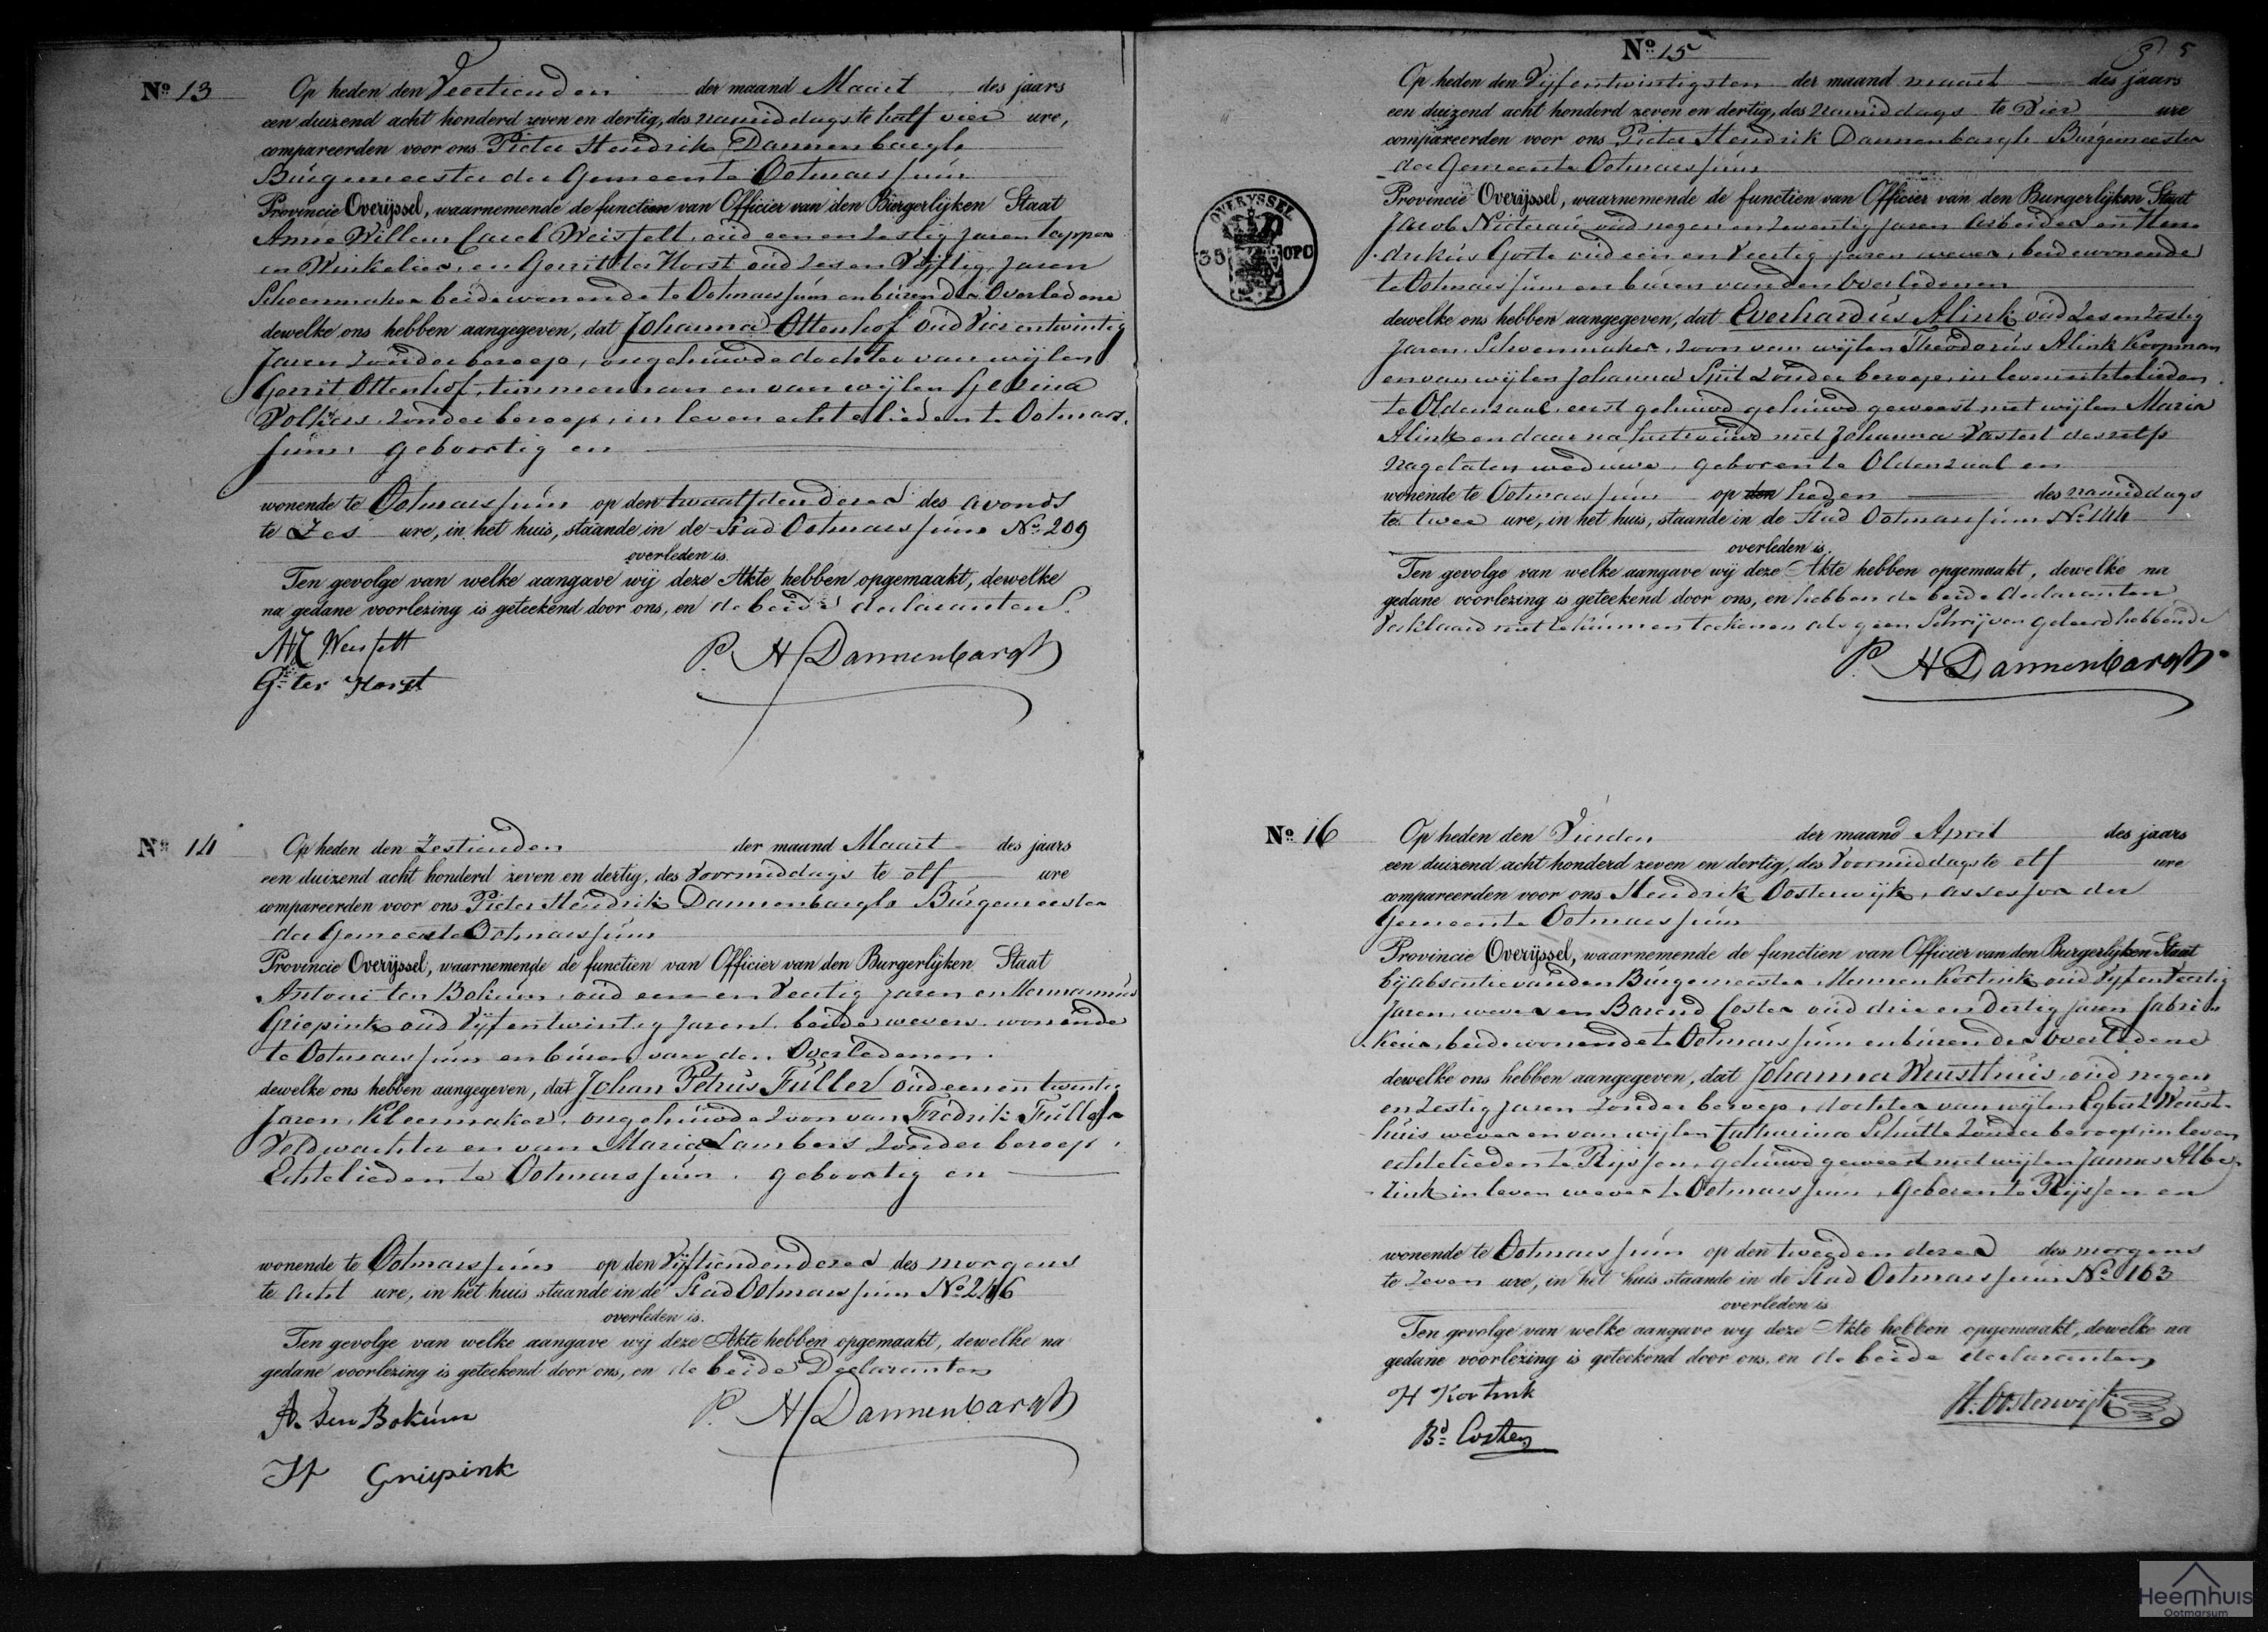 No 13 Op heden den Veertienden der maand Maart des jaars
een duizend acht honderd zeven en dertig, des namiddags te half vier ure,
compareerden voor ons Pieter Hendrik Dannenbargh
Burgemeester der Gemeente Ootmarssum
Provincie Overijssel, waarnemende de functien van Officier van den Burgerlijken Staat
Anne Willem Carel Weisfelt, oud een en zestig jaren tapper
en Winkelier, en Gerrit ter Horst oud zes en Vijftig jaren
Schoenmaker beide wonende te Ootmarssum en buren der Overledene
dewelke ons hebben aangegeven, dat Johanna Ottenhof oud Vier en twintig
Jaren zonder beroep, ongehuwde dochter van wijlen
Gerrit Ottenhof, timmerman en van wijlen Gezina
Volkers zonder beroep, in leven echtelieden te Ootmars-
sum, geboortig en
wonende te Ootmarssum op den twaalfden dezer des avonds
te Zes ure, in het huis, staande in de Stad Ootmarssum No 209
overleden is.
Ten gevolge van welke aangave wij deze Akte hebben opgemaakt, dewelke
na gedane voorlezing is geteekend door ons, en de beide declaranten.
AWC Weisfelt P. H Dannenbargh
G. ter Horst
No 14 Op heden den Zestienden der maand Maart des jaars
een duizend acht honderd zeven en dertig, des Voormiddags te elf ure
compareerden voor ons Pieter Hendrik Dannenbargh Burgemeester
der Gemeente Ootmarssum
Provincie Overijssel, waarnemende de functien van Officier van den Burgerlijken Staat
Antoni ten Bokum, oud een en Veertig jaren en Hermannus
Griepink oud Vijf en twintig jaren, beide wevers wonende
te Ootmarssum en buren van den Overledenen.
dewelke ons hebben aangegeven, dat Johan Petrus Fuller oud een en twintig
Jaren, Kleermaker, ongehuwde zoon van Fredrik Fuller
Veldwachter en van Maria Lambers zonder beroep,
Echtelieden te Ootmarssum, geboortig en
wonende te Ootmarssum op den Vijftienden dezer des morgens
te acht ure, in het huis staande in de Stad Ootmarssum No 246
overleden is.
Ten gevolge van welke aangave wij deze Akte hebben opgemaakt, dewelke na
gedane voorlezing is geteekend door ons, en de beide Declaranten
A. ten Bokum P. H Dannenbargh
H Griepink
No 15 5
Op heden den Vijfentwintigsten der maand maart des jaars
een duizend acht honderd zeven en dertig, des namiddags te Vier ure
compareerden voor ons Pieter Hendrik Dannenbargh Burgemeester
der Gemeente Ootmarssum
Provincie Overijssel, waarnemende de functien van Officier van den Burgerlijken Staat
Jacob Niclerau oud negen en zeventig jaren Arbeider en Hen-
drikus Goste oud een en Veertig jaren wever, beide wonende
te Ootmarssum en buren van den Overledenen
dewelke ons hebben aangegeven, dat Everhardus Alink oud zes en zestig
jaren, Schoenmaker, zoon van wijlen Theodorus Alink Koopman
en van wijlen Johanna Spit zonder beroep, in leven echtelieden
te Oldenzaal, eerst gehuwd gehuwd geweest met wijlen Maria
Alink en daarna hertrouwd met Johanna Vastert deszelfs
nagelaten weduwe, geboren te Oldenzaal en
wonende te Ootmarssum op den heden des namiddags
te twee ure, in het huis, staande in de Stad Ootmarssum No 144
overleden is.
Ten gevolge van welke aangave wij deze Akte hebben opgemaakt, dewelke na
gedane voorlezing is geteekend door ons, en hebben de beide declaranten
Verklaard niet te kunnen teekenen als geen Schrijven geleerd hebbende
P. H Dannenbargh
OVERYSSEL
35 OPC
No 16 Op heden den Vierden der maand April des jaars
een duizend acht honderd zeven en dertig, des Voormiddags te elf ure
compareerden voor ons Hendrik Oosterwijk, assessor der
Gemeente Ootmarssum
Provincie Overijssel, waarnemende de functien van Officier van den Burgerlijken Staat
bij absentie van den Burgemeester, Hermen Kortink oud Vijf en Veertig
Jaren, wever en Barend Coster oud drie en dertig jaren fabri-
keur, beide wonende te Ootmarssum en buren der Overledene
dewelke ons hebben aangegeven, dat Johanna Weusthuis, oud negen
en zestig jaren zonder beroep, dochter van wijlen Egbert Weust-
huis wever en van wijlen Catharina Schutte zonder beroep in leven
echtelieden te Rijssen, gehuwd geweest met wijlen Jannes Albe-
rink in leven wever te Ootmarssum, geboren te Rijssen en
wonende te Ootmarssum op den tweeden dezer des morgens
te Zeven ure, in het huis staande in de Stad Ootmarssum No 163
overleden is
Ten gevolge van welke aangave wy deze Akte hebben opgemaakt, dewelke na
gedane voorlezing is geteekend door ons, en de beide declaranten
H Kortink H. Oosterwijk
Bd Coster
Heemhuis
Ootmarsum